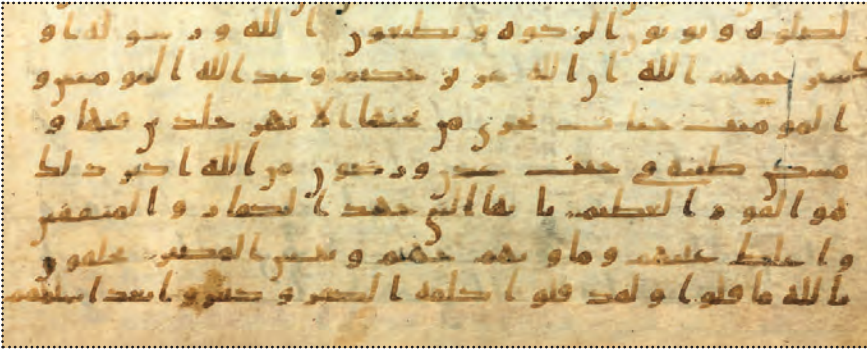 لصلوه و يوتون الزكوه و يطيعون الله و رسوله او
سيرحمهم الله ان الله عزيز حكيم وعد الله المومنين و
المومنت جنات تجري من تحتها الانهر خلدين فيها و
مسكن طيبه في جنت عدن ورضون من الله اكبر ذلك
هو الفوز العظيم يايها النبي جهد الكفار و المنفقين
و اغلظ عليهم و ماويهم جهنم و بيس المصير يحلفون
بالله ما قلوا و لقد قلوا كلمه الكفر و كفروا بعد اسلمهم